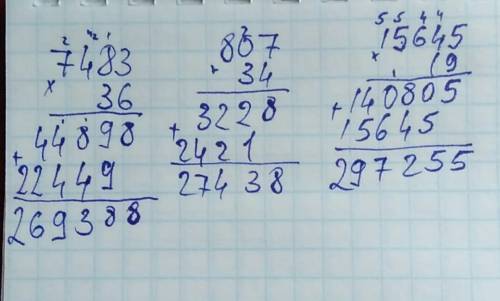 2 4 2 1
7483
x
36
44898
+
22449
269388
2
807
+
34
3228
+
2421
27438
5 5 4 4
15645
x
19
1
140805
+
15645
297255